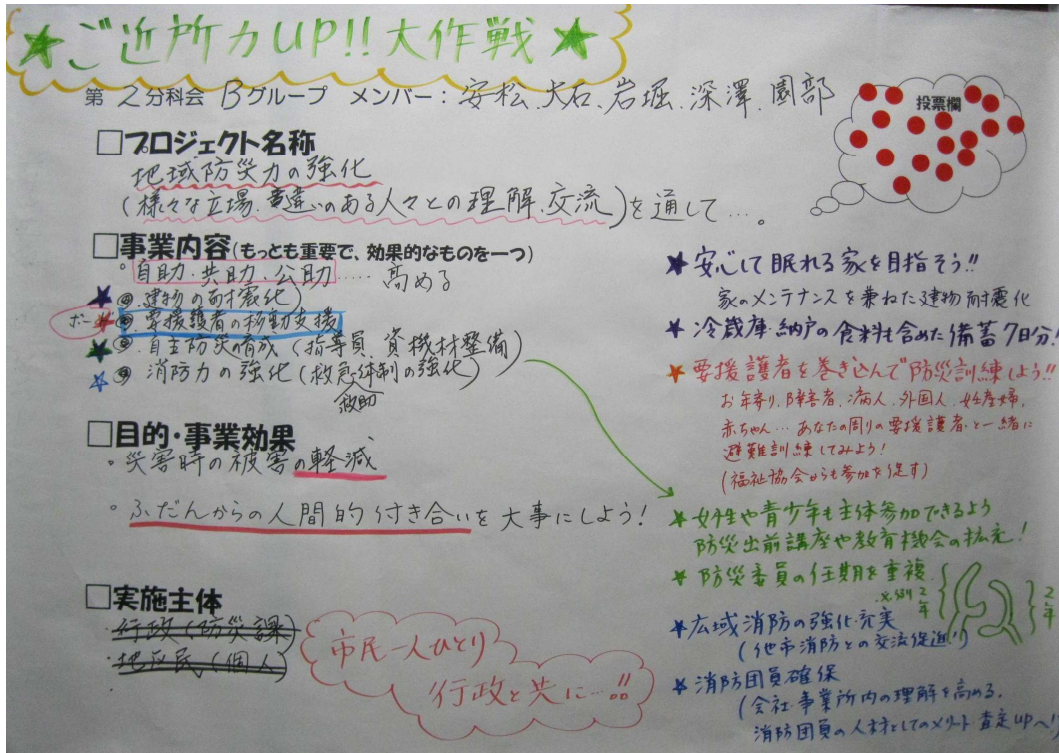 ★ご近所力UP!!大作戦★
第2分科会 Bグループ メンバー:安松、大石、岩堀、深澤、園部
投票欄
□プロジェクト名称
地域防災力の強化
(様々な立場、違いのある人々との理解、交流)を通して…。
□事業内容(もっとも重要で、効果的なものを一つ)
。自助・共助・公助……高める
★◎建物の耐震化)
★◎要援護者の移動支援
★◎自主防災の育成(指導員、資機材整備)
☆◎消防力の強化(救急体制の強化)
救助
□目的・事業効果
。災害時の被害の軽減
。ふだんからの人間的付き合いを大事にしよう!
□実施主体
・行政(防災課)
・地区民(個人)
市民一人ひとり
行政と共に…!!
★安心して眠れる家を目指そう!!
家のメンテナンスを兼ねた建物耐震化
★冷蔵庫・納戸の食料も含めた備蓄7日分!
★要援護者を巻き込んで防災訓練しよう!!
お年寄り、障害者、病人、外国人、妊産婦、
赤ちゃん…あなたの周りの要援護者と一緒に
避難訓練してみよう!
(福祉協会からも参加を促す)
★女性や青少年も主体参加できるよう
防災出前講座や教育機会の拡充!
★防災委員の任期を重複
2年
2年
★広域消防の強化充実
(他市消防との交流促進!)
★消防団員確保
(会社・事業所内の理解を高める、
消防団員の人材としてのメリット・査定UPへ!!